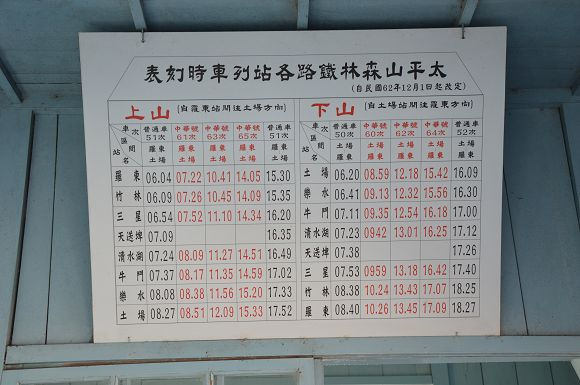 表刻時車列站各路鐵林森山平太
(自民國62年12月1日起改定)
上山 (自羅東站開往土場方向)
車次 普通車51次 中華號61次 中華號63次 中華號65次 普通車51次
區間 站名 羅東 土場 羅東 土場 羅東 土場 羅東 土場 羅東 土場
羅東 06.04 07.22 10.41 14.05 15.30
竹林 06.09 07.26 10.45 14.09 15.35
三星 06.54 07.52 11.10 14.34 16.20
天送埤 07.09 16.35
清水湖 07.24 08.09 11.27 14.51 16.49
牛門 07.37 08.17 11.35 14.59 17.02
樂水 08.08 08.38 11.56 15.20 17.33
土場 08.27 08.51 12.09 15.33 17.52
下山 (自土場站開往羅東方向)
車次 普通車50次 中華號60次 中華號62次 中華號64次 普通車52次
區間 站名 羅東 土場 羅東 土場 羅東 土場 羅東 土場 羅東 土場
土場 06.20 08.59 12.18 15.42 16.09
樂水 06.41 09.13 12.32 15.56 16.30
牛門 07.11 09.35 12.54 16.18 17.00
清水湖 07.23 0942 13.01 16.25 17.12
天送埤 07.38 17.26
三星 07.53 0959 13.18 16.42 17.40
竹林 08.30 10.24 13.43 17.07 18.25
羅東 08.40 10.26 13.45 17.09 18.27